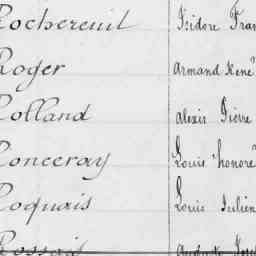 Rochereuil Isidore Fran
Roger Armand René
Rolland Alexis Pierre
Ronceray Louis honoré
Roquais Louis Julien